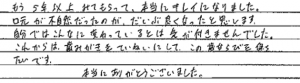 もう5年以上れてもらって、本当にキレイになりました。
口元が不自然だったのが、だいぶ良くなったと思います。
自分ではこんなに変わっているとは気が付きませんでした。
これからは歯みがきをていねいにして、この歯ならびを保ち
たいです。
本当にありがとうございました。